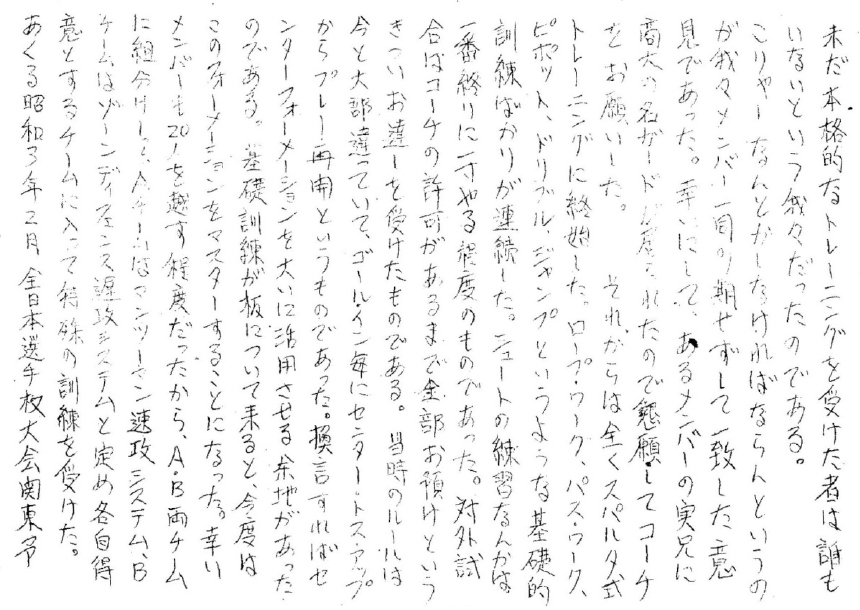 未だ本格的なトレーニングを受けた者は誰も
いないという我々だったのである。
こりゃーなんとかしなければならんというの
が我々メンバー一同の期せずして一致した意
見であった。幸いにして、あるメンバーの実兄に
商大の名ガードが居られたので懇願してコーチ
をお願いした。 それからは全くスパルタ式
トレーニングに終始した。ロープ・ワーク、パス・ワーク、
ピボット、ドリブル、ジャンプというような基礎的
訓練ばかりが連続した。シュートの練習なんかは、
一番終りに一寸やる程度のものであった。対外試
合はコーチの許可があるまで全部お預けという
きついお達しを受けたものである。当時のルールは
今と大部違っていて、ゴール・イン毎にセンター・トス・アップ
からプレー再開というものであった。換言すればセ
ンターフォーメーションを大いに活用させる余地があった
のである。基礎訓練が板について来ると、今度は
このフォーメーションをマスターすることになった。幸い
メンバーも20人を越す程度だったから、A・B両チーム
に組分けしてAチームはマンツーマン速攻システム、B
チームはゾーンディフェンス遅攻システムと定め各自得
意とするチームに入って特殊の訓練を受けた。
あくる昭和3年2月全日本選手权大会関東予